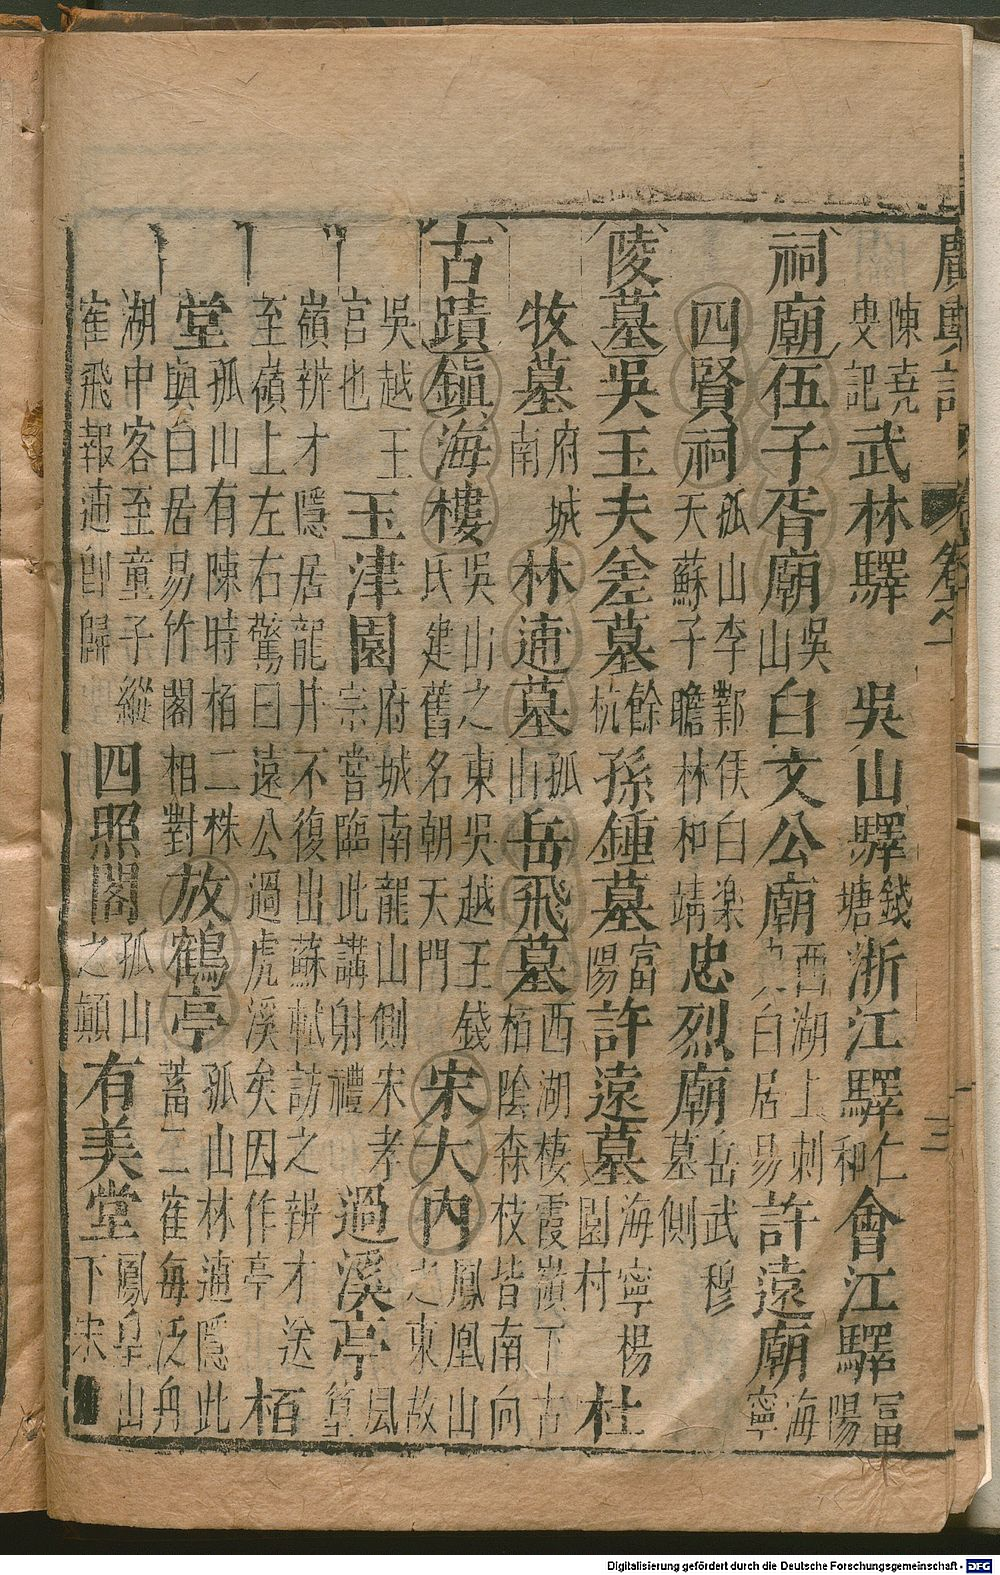 陳堯叟記 武林驛 吳山驛錢塘 浙江驛仁和 會江驛富陽
祠廟 伍子胥廟吳山 白文公廟西湖上刺史白居易 許遠廟海寧
四賢祠孤山李鄴侯白樂天蘇子瞻林和靖 忠烈廟岳武穆墓側
陵墓 吳王夫差墓餘杭 孫鍾墓富陽 許遠墓海寧楊園村 杜
牧墓府城南 林逋墓孤山 岳飛墓西湖棲霞嶺下古栢陰森枝皆南向
古蹟 鎮海樓吳山之東吳越王錢氏建舊名朝天門 宋大內鳳凰山之東故
吳越王宮也 玉津園府城南龍山側宋孝宗嘗臨此講射禮 過溪亭風篁
嶺辨才隱居龍井不復出蘇軾訪之辨才送至嶺上左右驚曰遠公過虎溪矣因作亭 栢
堂孤山有陳時栢二株與白居易竹閣相對 放鶴亭孤山林逋隱此蓄二寉每泛舟
湖中客至童子縱寉飛報逋即歸 四照閣孤山之顛 有美堂鳳皇山下宋
三
Digitalisierung gefördert durch die Deutsche Forschungsgemeinschaft - DFG